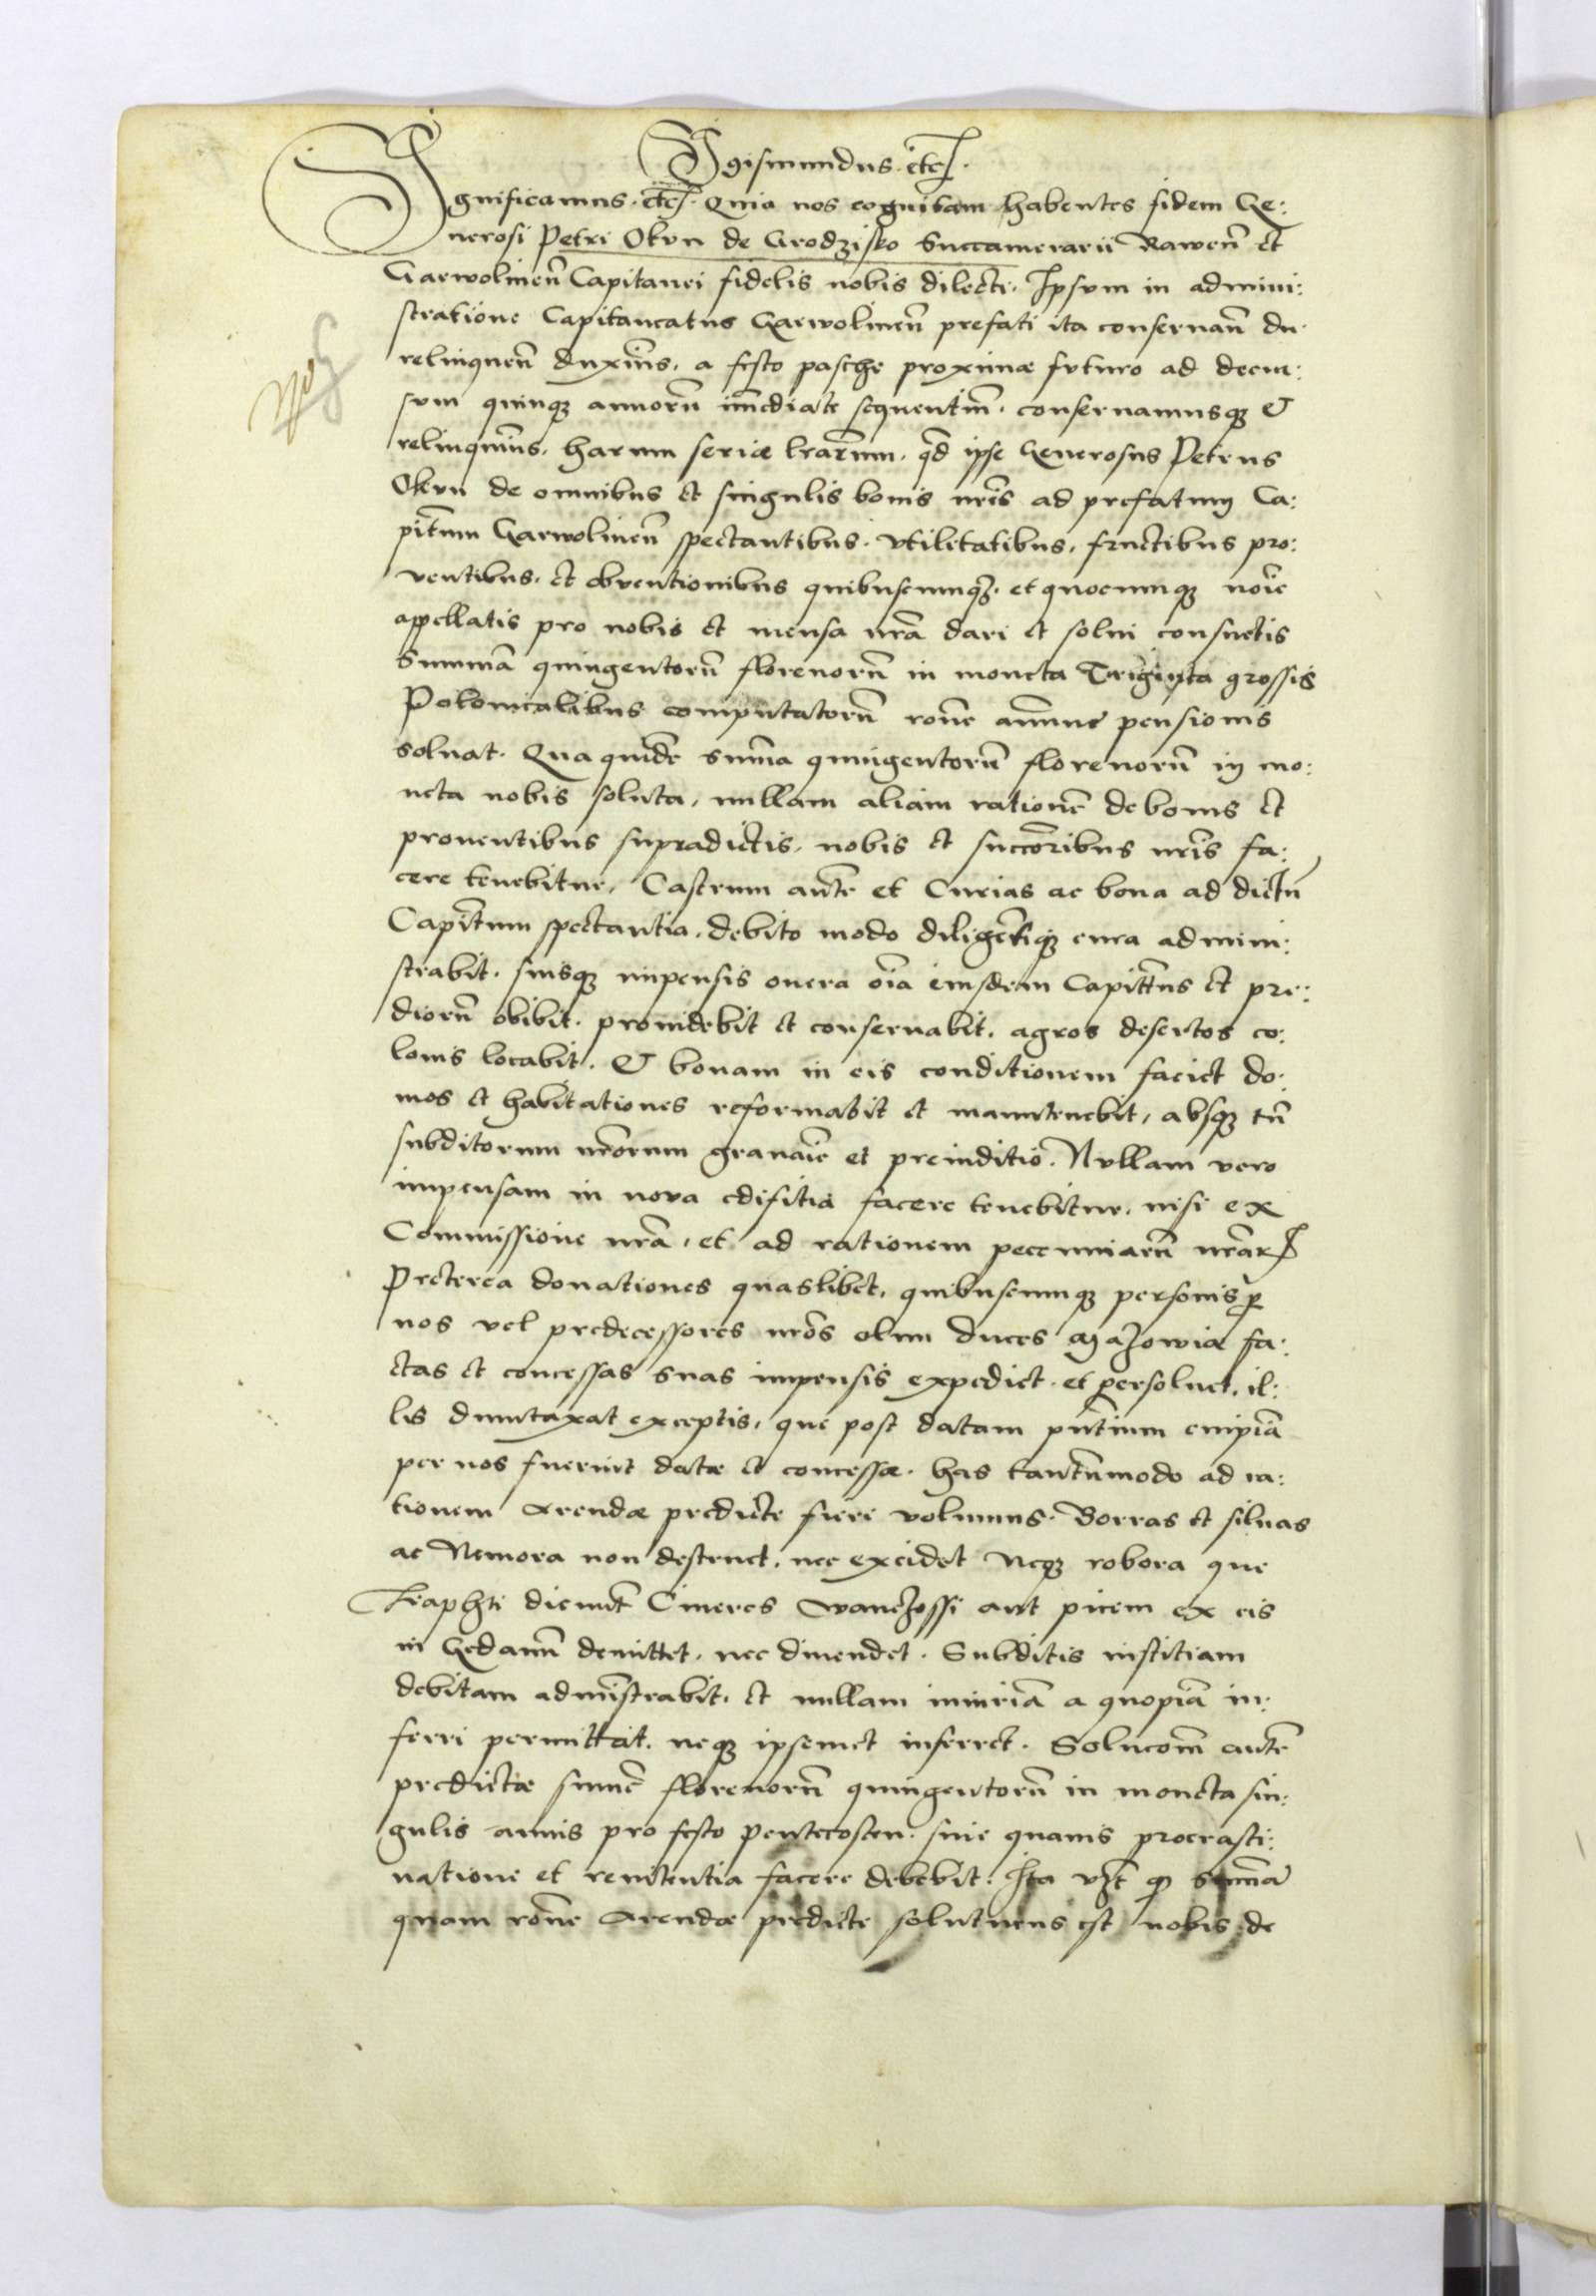 Sigismundus. etc.
Significamus. etc. Quia nos cognitam habentes fidem Ge:
nerosi Petri Okvn de Grodzisko Succamerarii Rawen̄ et
Garwolinen̄ Capitanei fidelis nobis dilecti. Ipsvm in admini:
stratione Capitaneatus Garwolinen̄ prefati ita conseruan̄ du
relinquen̄ duxim̄s, a festo pasche proximæ fvturo ad decur:
svm quinq3 annorū im̄ediate sequentiū. conseruamusq3 &
relinquim̄s. harum seriæ lrārum. qd̄ ipse Generosus Petrus
Okvn de omnibus et singulis bonis nrīs ad prefatum Ca:
pitm̄ Garwolinen̄ spectantibus. vtilitatibus, fructibus pro:
ventibus, et obventionibus quibuscumq3. et quocumq3 noīe
appellatis pro nobis et mensa nrā dari et solui consuetis
Summā quingentorū florenorū in moneta Triginta grossis
Polonicalibus computatorū roūe annue pensionis
soluat. Qua quidē summa quingentorū florenorū in mo:
neta nobis soluta, nullam aliam rationē de bonis et
prouentibus supradictis, nobis et succōribus nrīs fa:
cere tenebitur, Castrum autē et Curias ac bona ad dictū
Capitm̄ spectantia, debito modo diligētiq3 cura admini:
strabit. suisq3 impensis onera oīa eiusdem Capittūs et pre:
diorū obibit. prouidebit et conseruabit. agros desertos co:
lonis locabit. & bonam in eis conditionem faciet do:
mos et habitationes reformabit et manutenebit, absq3 tn̄
subditorum nrōrum grauaīe et preiuditio. Nvllam vero
impensam in nova edifitia facere tenebitur. nisi ex
Commissione nrā, et ad rationem pecuniarū nrār
Preterea donationes quaslibet, quibuscumq3 personis p̄
nos vel predecessores nrōs olim duces Mazowiæ fa:
ctas et concessas suas impensis expediet. et persoluet. il:
lis dumtaxat exceptis, que post datam pn̄tium cuipiā
per nos fuerint datæ et concessæ. has tantūmodo ad ra:
tionem Arendæ predicte fieri volumus. Borras et siluas
ac Nemora non destruet. nec excidet Neq3 robora que
Traphti dicunt̄ Cineres Wanczossi aut picem ex eis
in Gedanū demittet. nec diuendet. Subditis iustitiam
debitam adm̄istrabit. et nullam iniuriā a quopiā in:
ferri permittat. neq3 ipsemet inferret. Solucōm̄ autē
predictæ sum̄e florenorū quingentorū in moneta sin:
gulis annis pro festo pentecosten. sine quauis procrasti:
natione et renitentia facere debebit. Ita vzt̄ q̄ summā
quam roūe Arendæ predicte soluturus est nobis de